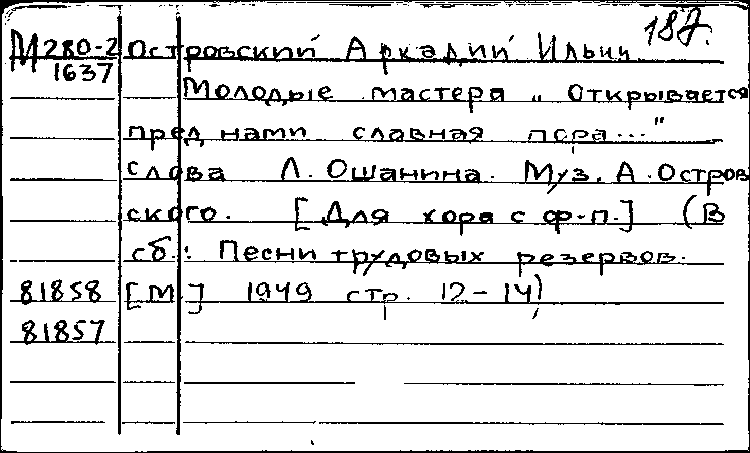 187.
М280-2 Островский Аркадий Ильич
1637
Молодые мастера „Открывается
пред нами славная пора..."
слова Л. Ошанина. Муз. А. Остров
ского. [Для хора с ф-п.] (В
сб.: Песни трудовых резервов.
81858 [М] 1949 стр. 12-14)
81857